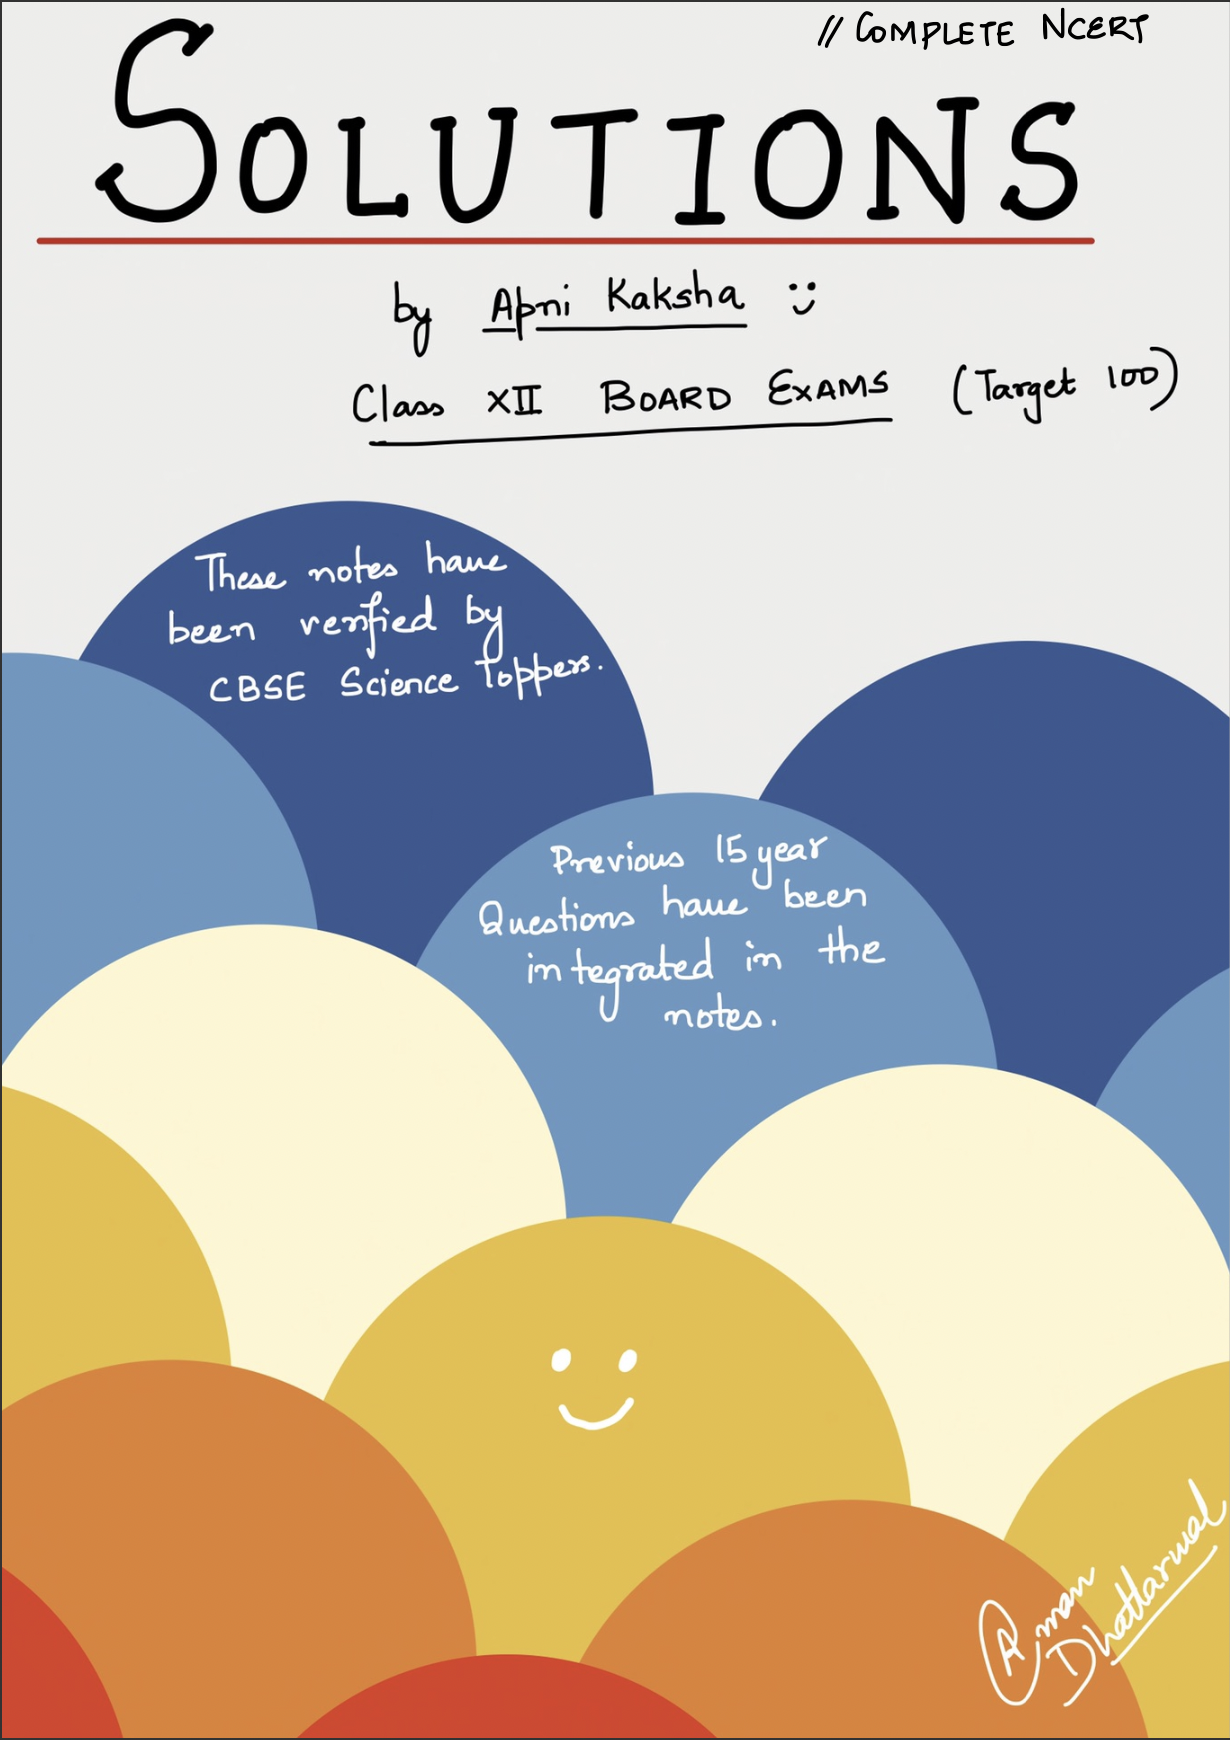 // COMPLETE NCERT
SOLUTIONS
by Apni Kaksha
Class XII BOARD EXAMS (Target 100)
These notes have
been verified by
CBSE Science toppers.
Previous 15 year
Questions have been
integrated in the
notes.
Aman
Dhattarwal